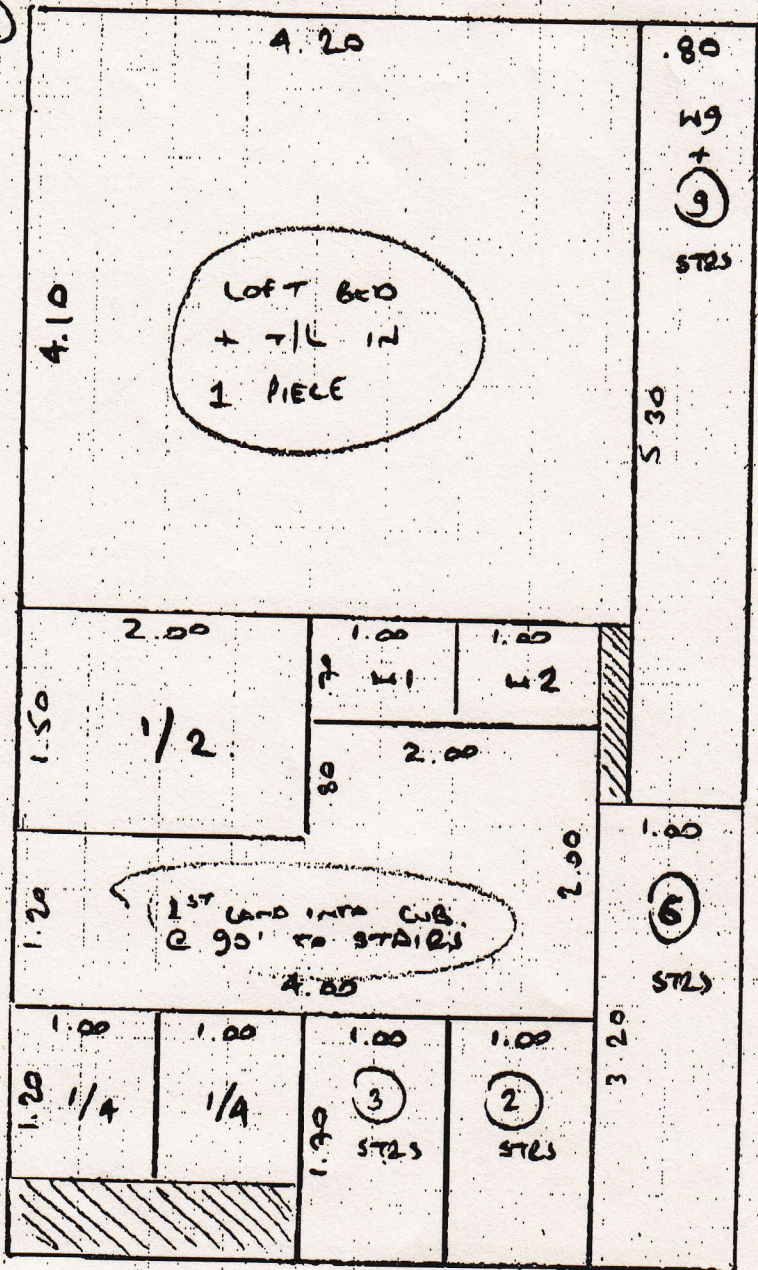 4.20
.80
W9
+
9
STRS
4.10
LOFT BED
+ T/L IN
1 PIECE
5 30
2.00
1.00
1.00
1.50
1/2
70
H1
H2
80
2.00
1.00
6
STRS
1.20
1ST LAND INTO CUB.
@ 90° TO STAIRS
2.00
4.00
3 20
1.00
1.00
1.00
1.00
1.20
1/4
1/4
1.70
3
STRS
2
STRS